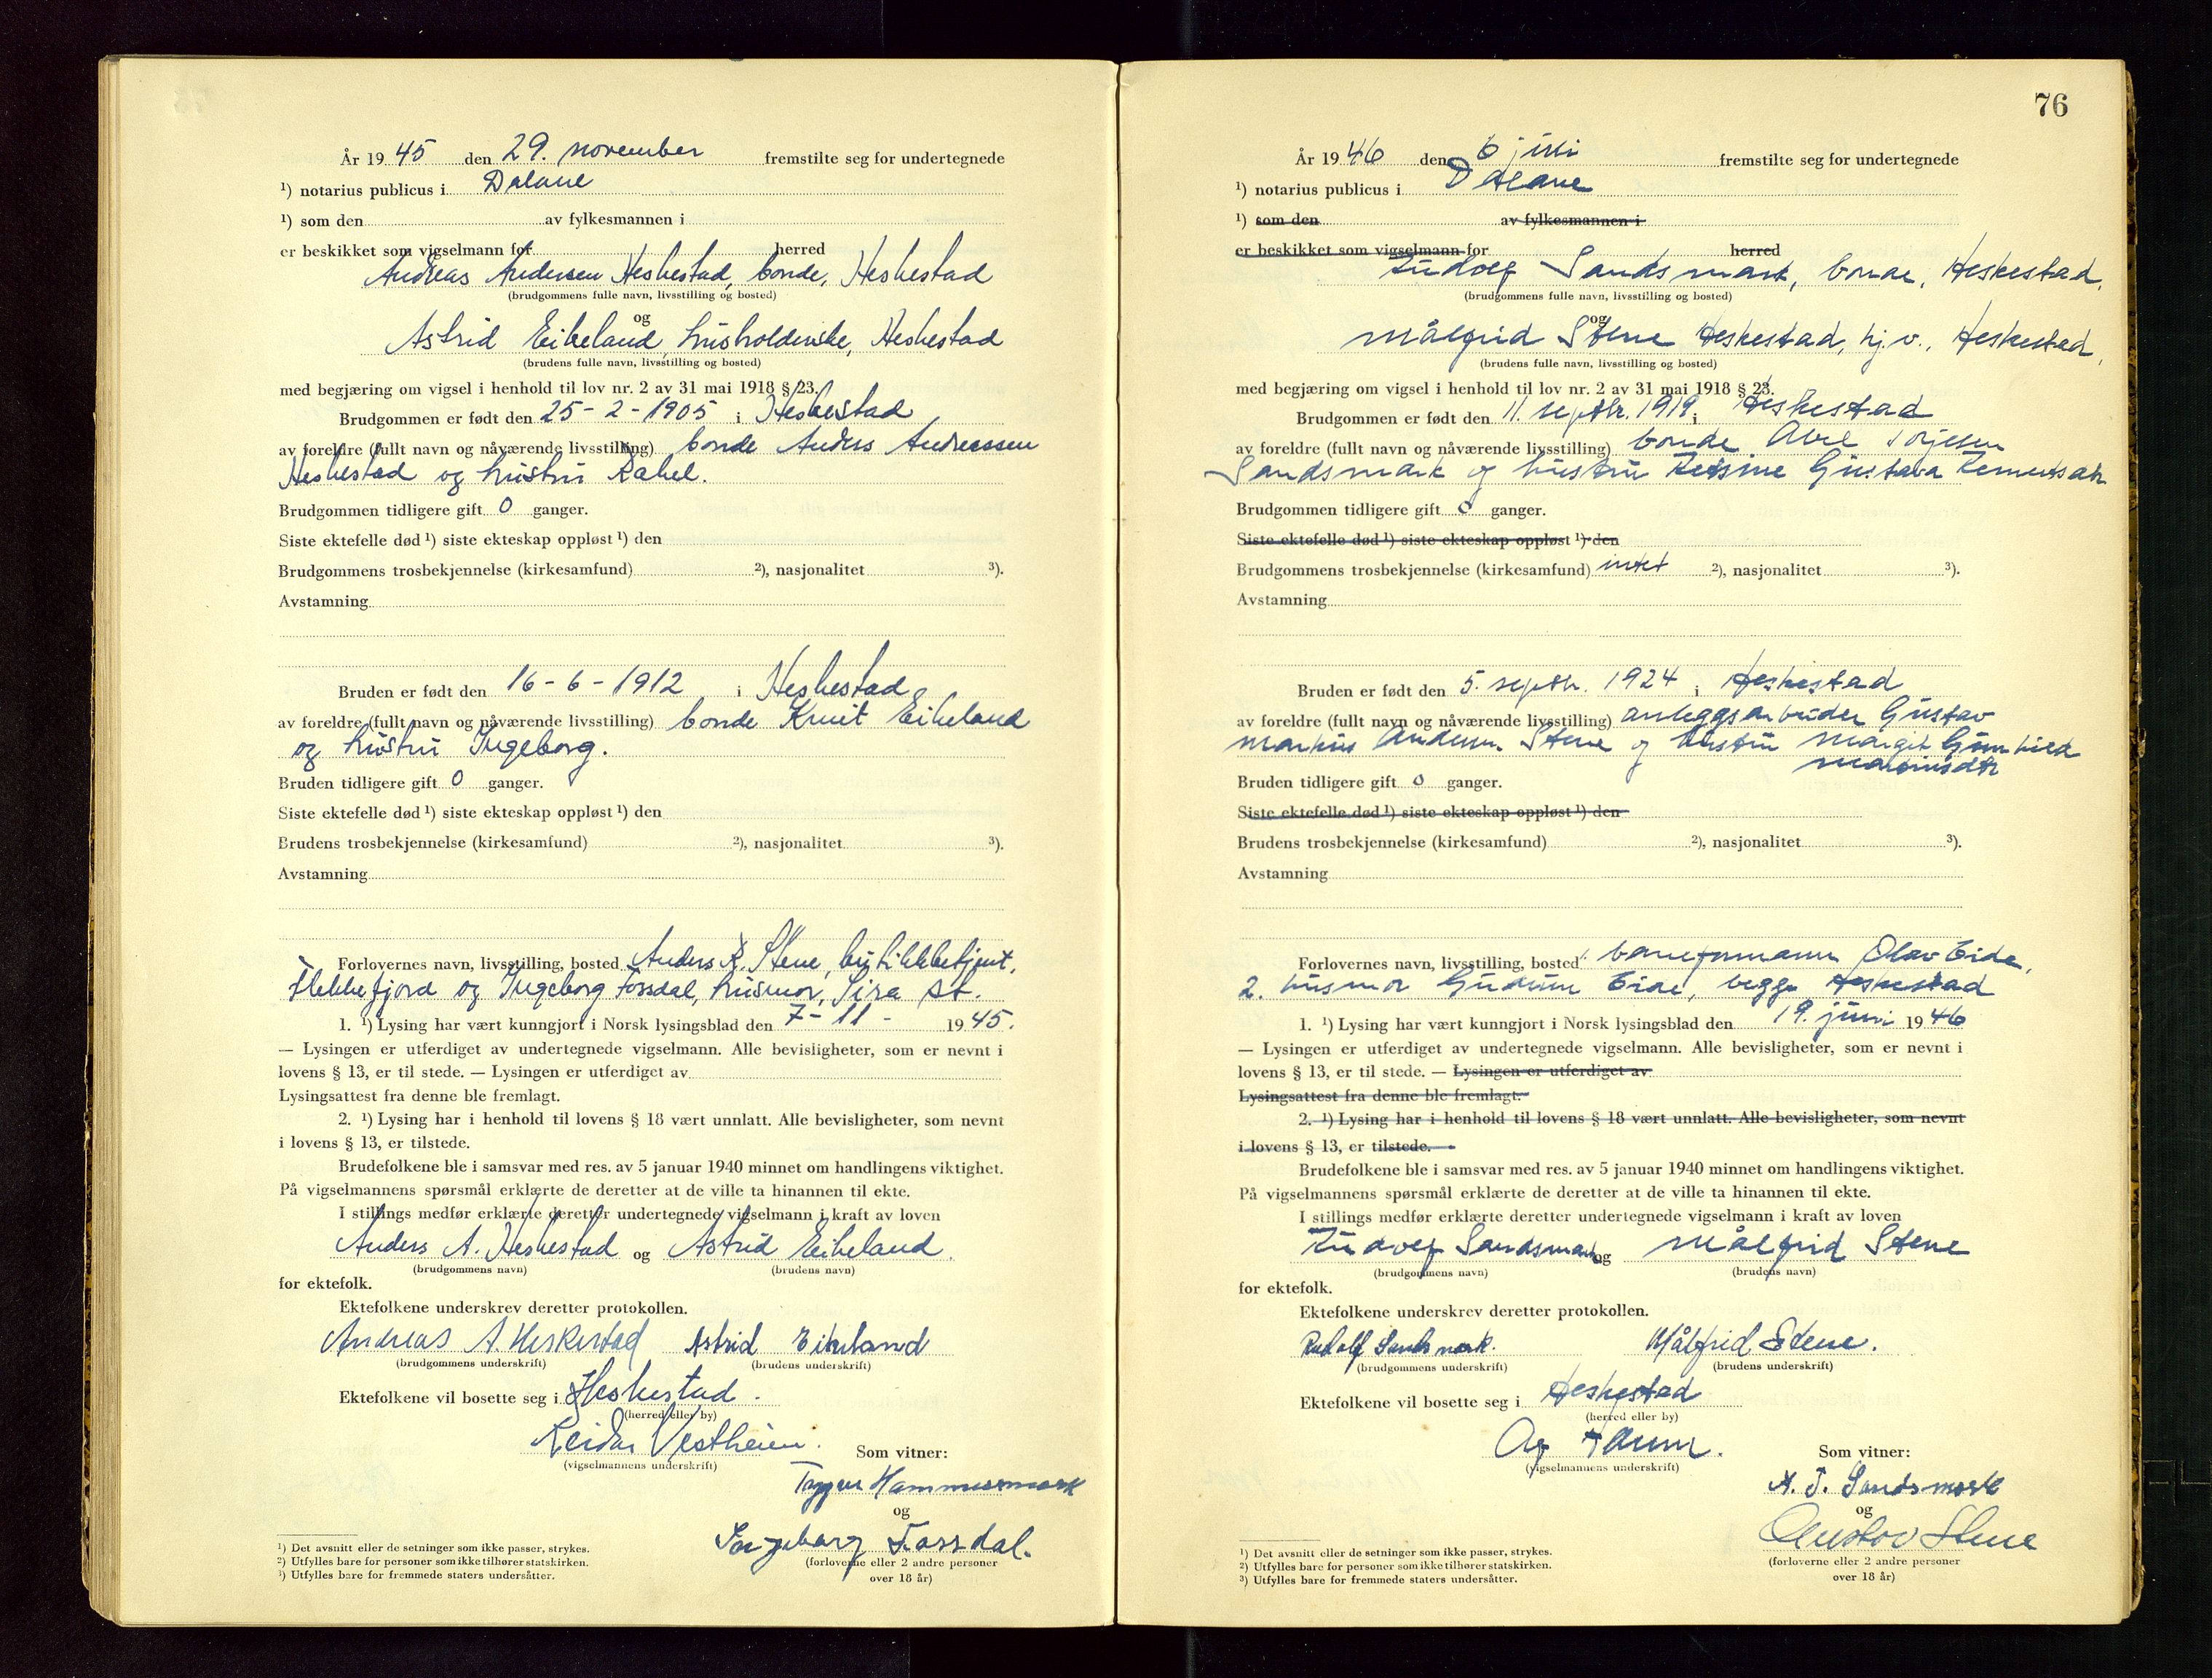 År 1945 den 29. november fremstilte seg for undertegnede
¹) notarius publicus i Dalane
¹) som den av fylkesmannen i
er beskikket som vigselmann for herred
Andreas Andersen Heskestad, bonde, Heskestad
(brudgommens fulle navn, livsstilling og bosted)
og
Astrid Eikeland, husholderske, Heskestad
(brudens fulle navn, livsstilling og bosted)
med begjæring om vigsel i henhold til lov nr. 2 av 31 mai 1918 § 23.
Brudgommen er født den 25-2-1905 i Heskestad
av foreldre (fullt navn og nåværende livsstilling) bonde Anders Andreassen
Heskestad og hustru Rakel.
Brudgommen tidligere gift 0 ganger.
Siste ektefelle død ¹) siste ekteskap oppløst ¹) den
Brudgommens trosbekjennelse (kirkesamfund) ²), nasjonalitet ³).
Avstamning
Bruden er født den 16-6-1912 i Heskestad
av foreldre (fullt navn og nåværende livsstilling) bonde Knut Eikeland
og hustru Ingeborg.
Bruden tidligere gift 0 ganger.
Siste ektefelle død ¹) siste ekteskap oppløst ¹) den
Brudens trosbekjennelse (kirkesamfund) ²), nasjonalitet ³).
Avstamning
Forlovernes navn, livsstilling, bosted Anders R. Stene, butikkbetjent,
Flekkefjord og Ingeborg Fossdal, husmor, Sira st.
1. ¹) Lysing har vært kunngjort i Norsk lysingsblad den 7-11- 1945.
— Lysingen er utferdiget av undertegnede vigselmann. Alle bevisligheter, som er nevnt i
lovens § 13, er til stede. — Lysingen er utferdiget av
Lysingsattest fra denne ble fremlagt.
2. ¹) Lysing har i henhold til lovens § 18 vært unnlatt. Alle bevisligheter, som nevnt
i lovens § 13, er tilstede.
Brudefolkene ble i samsvar med res. av 5 januar 1940 minnet om handlingens viktighet.
På vigselmannens spørsmål erklærte de deretter at de ville ta hinannen til ekte.
I stillings medfør erklærte deretter undertegnede vigselmann i kraft av loven
Anders A. Heskestad og Astrid Eikeland.
(brudgommens navn) (brudens navn)
for ektefolk.
Ektefolkene underskrev deretter protokollen.
Andreas A. Heskestad Astrid Eikeland
(brudgommens underskrift) (brudens underskrift)
Ektefolkene vil bosette seg i Heskestad.
(herred eller by)
Reidar Vestheim.
(vigselmannens underskrift)
Som vitner:
Trygve Hammersmark
og
Ingeborg Fossdal.
(forloverne eller 2 andre personer
over 18 år)
¹) Det avsnitt eller de setninger som ikke passer, strykes.
²) Utfylles bare for personer som ikke tilhører statskirken.
³) Utfylles bare for fremmede staters undersåtter.
76
År 1946 den 6 juli fremstilte seg for undertegnede
¹) notarius publicus i Dalane
¹) som den av fylkesmannen i
er beskikket som vigselmann for herred
Rudolf Sandsmark, bonde, Heskestad,
(brudgommens fulle navn, livsstilling og bosted)
og
Målfrid Stene Heskestad, hj.v., Heskestad,
(brudens fulle navn, livsstilling og bosted)
med begjæring om vigsel i henhold til lov nr. 2 av 31 mai 1918 § 23.
Brudgommen er født den 11. septbr. 1919 i Heskestad
av foreldre (fullt navn og nåværende livsstilling) bonde Abel Torjesen
Sandsmark og hustru Gustava
Brudgommen tidligere gift 0 ganger.
Siste ektefelle død ¹) siste ekteskap oppløst ¹) den
Brudgommens trosbekjennelse (kirkesamfund) intet ²), nasjonalitet ³).
Avstamning
Bruden er født den 5. septbr. 1924 i Heskestad
av foreldre (fullt navn og nåværende livsstilling) anleggsarbeider Gustav
Markus Andersen Stene og hustru Margit Gunhild
Bruden tidligere gift 0 ganger.
Siste ektefelle død ¹) siste ekteskap oppløst ¹) den
Brudens trosbekjennelse (kirkesamfund) ²), nasjonalitet ³).
Avstamning
Forlovernes navn, livsstilling, bosted: baneformann Olav Eide,
2. husmor Gudrun Eide, begge Heskestad
1. ¹) Lysing har vært kunngjort i Norsk lysingsblad den 19. juni 1946
— Lysingen er utferdiget av undertegnede vigselmann. Alle bevisligheter, som er nevnt i
lovens § 13, er til stede. — Lysingen er utferdiget av
Lysingsattest fra denne ble fremlagt.
2. ¹) Lysing har i henhold til lovens § 18 vært unnlatt. Alle bevisligheter, som nevnt
i lovens § 13, er tilstede.
Brudefolkene ble i samsvar med res. av 5 januar 1940 minnet om handlingens viktighet.
På vigselmannens spørsmål erklærte de deretter at de ville ta hinannen til ekte.
I stillings medfør erklærte deretter undertegnede vigselmann i kraft av loven
Rudolf Sandsmark og Målfrid Stene
(brudgommens navn) (brudens navn)
for ektefolk.
Ektefolkene underskrev deretter protokollen.
Rudolf Sandsmark. Målfrid Stene.
(brudgommens underskrift) (brudens underskrift)
Ektefolkene vil bosette seg i Heskestad
(herred eller by)
(vigselmannens underskrift)
Som vitner:
A. T. Sandsmark
og
Gustav Stene
(forloverne eller 2 andre personer
over 18 år)
¹) Det avsnitt eller de setninger som ikke passer, strykes.
²) Utfylles bare for personer som ikke tilhører statskirken.
³) Utfylles bare for fremmede staters undersåtter.